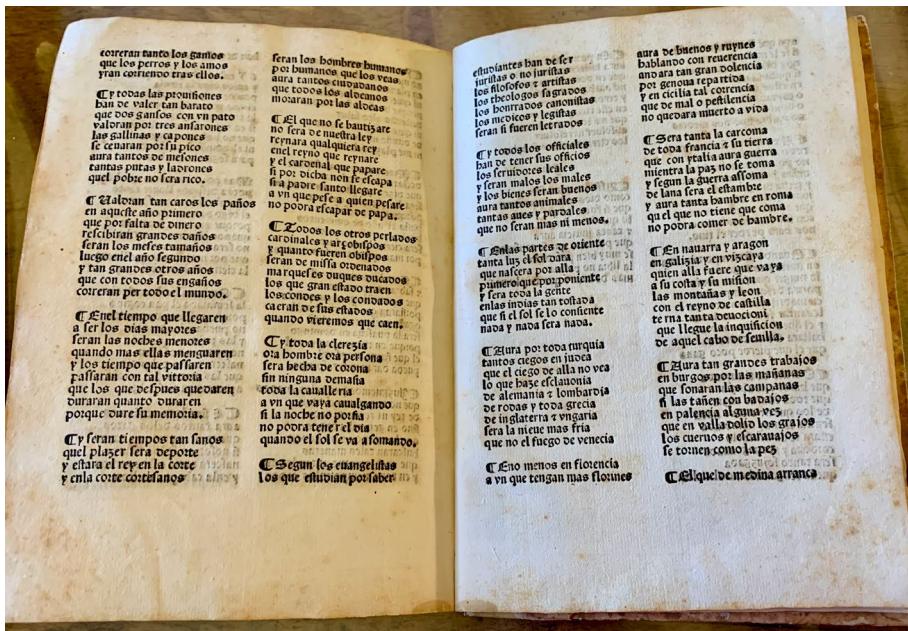 correran tanto los gamos
que los perros y los amos
yran corriendo tras ellos.
¶ Y todas las prouisiones
han de valer tan barato
que dos gansos con vn pato
valoran por tres ansarones
las gallinas y capones
se cenaran por su pico
aura tantos de mesones
tantas putas y ladrones
quel pobre no sera rico.
¶ Ualdran tan caros los paños
en aqueste año primero
que por falta de dinero
rescibiran grandes daños
seran los meses tamaños
luego enel año segundo
y tan grandes otros años
que con todos sus engaños
correran per todo el mundo.
¶ Enel tiempo que llegaren
a ser los dias mayores
seran las noches menores
quando mas ellas menguaren
y los tiempo que passaren
passaran con tal vittoria
que los que despues quedaren
duraran quanto duraren
porque dure su memoria.
¶ Y seran tiempos tan sanos
quel plazer sera deporte
y estara el rey en la corte
y enla corte cortesanos
seran los hombres humanos
por humanos que los veas
aura tantos ciudadanos
que todos los aldeanos
moraran por las aldeas
¶ El que no se bautizare
no sera de nuestra ley
reynara qualquiera rey
enel reyno que reynare
y el cardenal que papare
si por dicha non se escapa
si a padre santo llegare
a vn que pese a quien pesare
no podra escapar de papa.
¶ Todos los otros perlados
cardinales y arçobispos
y quanto fueren obispos
seran de missa ordenados
marqueses duques ducados
los que gran estado traen
los condes y los condados
caeran de sus estados
quando vieremos que caen.
¶ Y toda la clerezia
ora hombre ora persona
sera hecha de corona
sin ninguna demasia
toda la caualleria
a vn que vaya caualgando
si la noche no porfia
no podra tener el dia
quando el sol se va asomando.
¶ Segun los euangelistas
los que estudian por saber
estudiantes han de ser
juristas o no juristas
los filosofos ⁊ artistas
los theologos sagrados
los honrrados canonistas
los medicos y legistas
seran si fueren letrados
¶ y todos los officiales
han de tener sus officios
los seruidores leales
y seran malos los males
y los bienes seran buenos
aura tantos animales
tantas aues y pardales
que no seran mas ni menos.
¶ Enlas partes de oriente
tanta luz el sol dara
que nascera por alla
primero que por poniente
y sera toda la gente
enlas indias tan tostada
que si el sol se lo consiente
nada y nada sera nada.
¶ Aura por toda turquia
tantos ciegos en judea
que el ciego de alla no vea
lo que haze esclauonia
de alemania ⁊ lombardia
de rodas y toda grecia
de inglaterra ⁊ vngaria
sera la nieue mas fria
que no el fuego de venecia
¶ Eno menos en florencia
a vn que tengan mas florines
aura de buenos y ruynes
hablando con reuerencia
andara tan gran dolencia
por genoua repartida
y en cicilia tal correncia
que de mal o pestilencia
no quedara muerto a vida
¶ Sera tanta la carcoma
de toda francia ⁊ su tierra
que con ytalia aura guerra
mientra la paz no se toma
y segun la guerra assoma
de lana sera el estambre
y aura tanta hambre en roma
qu el que no tiene que coma
no podra comer de hambre.
¶ En nauarra y aragon
en galizia y en vizcaya
quien alla fuere que vaya
a su costa y su mision
las montañas y leon
con el reyno de castilla
terna tanta deuocioni
que llegue la inquisicion
de aquel cabo de seuilla.
¶ Aura tan grandes trabajos
en burgos por las mañanas
que sonaran las campanas
si las tañen con badajos
en palencia alguna vez
que en valladolid los grajos
los cueruos y escarauajos
se tornen como la pez
¶ El que de medina arranca